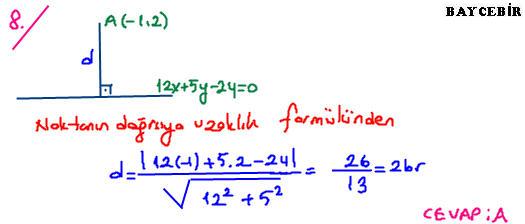 BAYCEBİR
8./
A(-1,2)
d
12x+5y-24=0
Noktanın doğruya uzaklık formülünden
d = |12(-1)+5.2-24| / √(12²+5²) = 26/13 = 2br
CEVAP: A